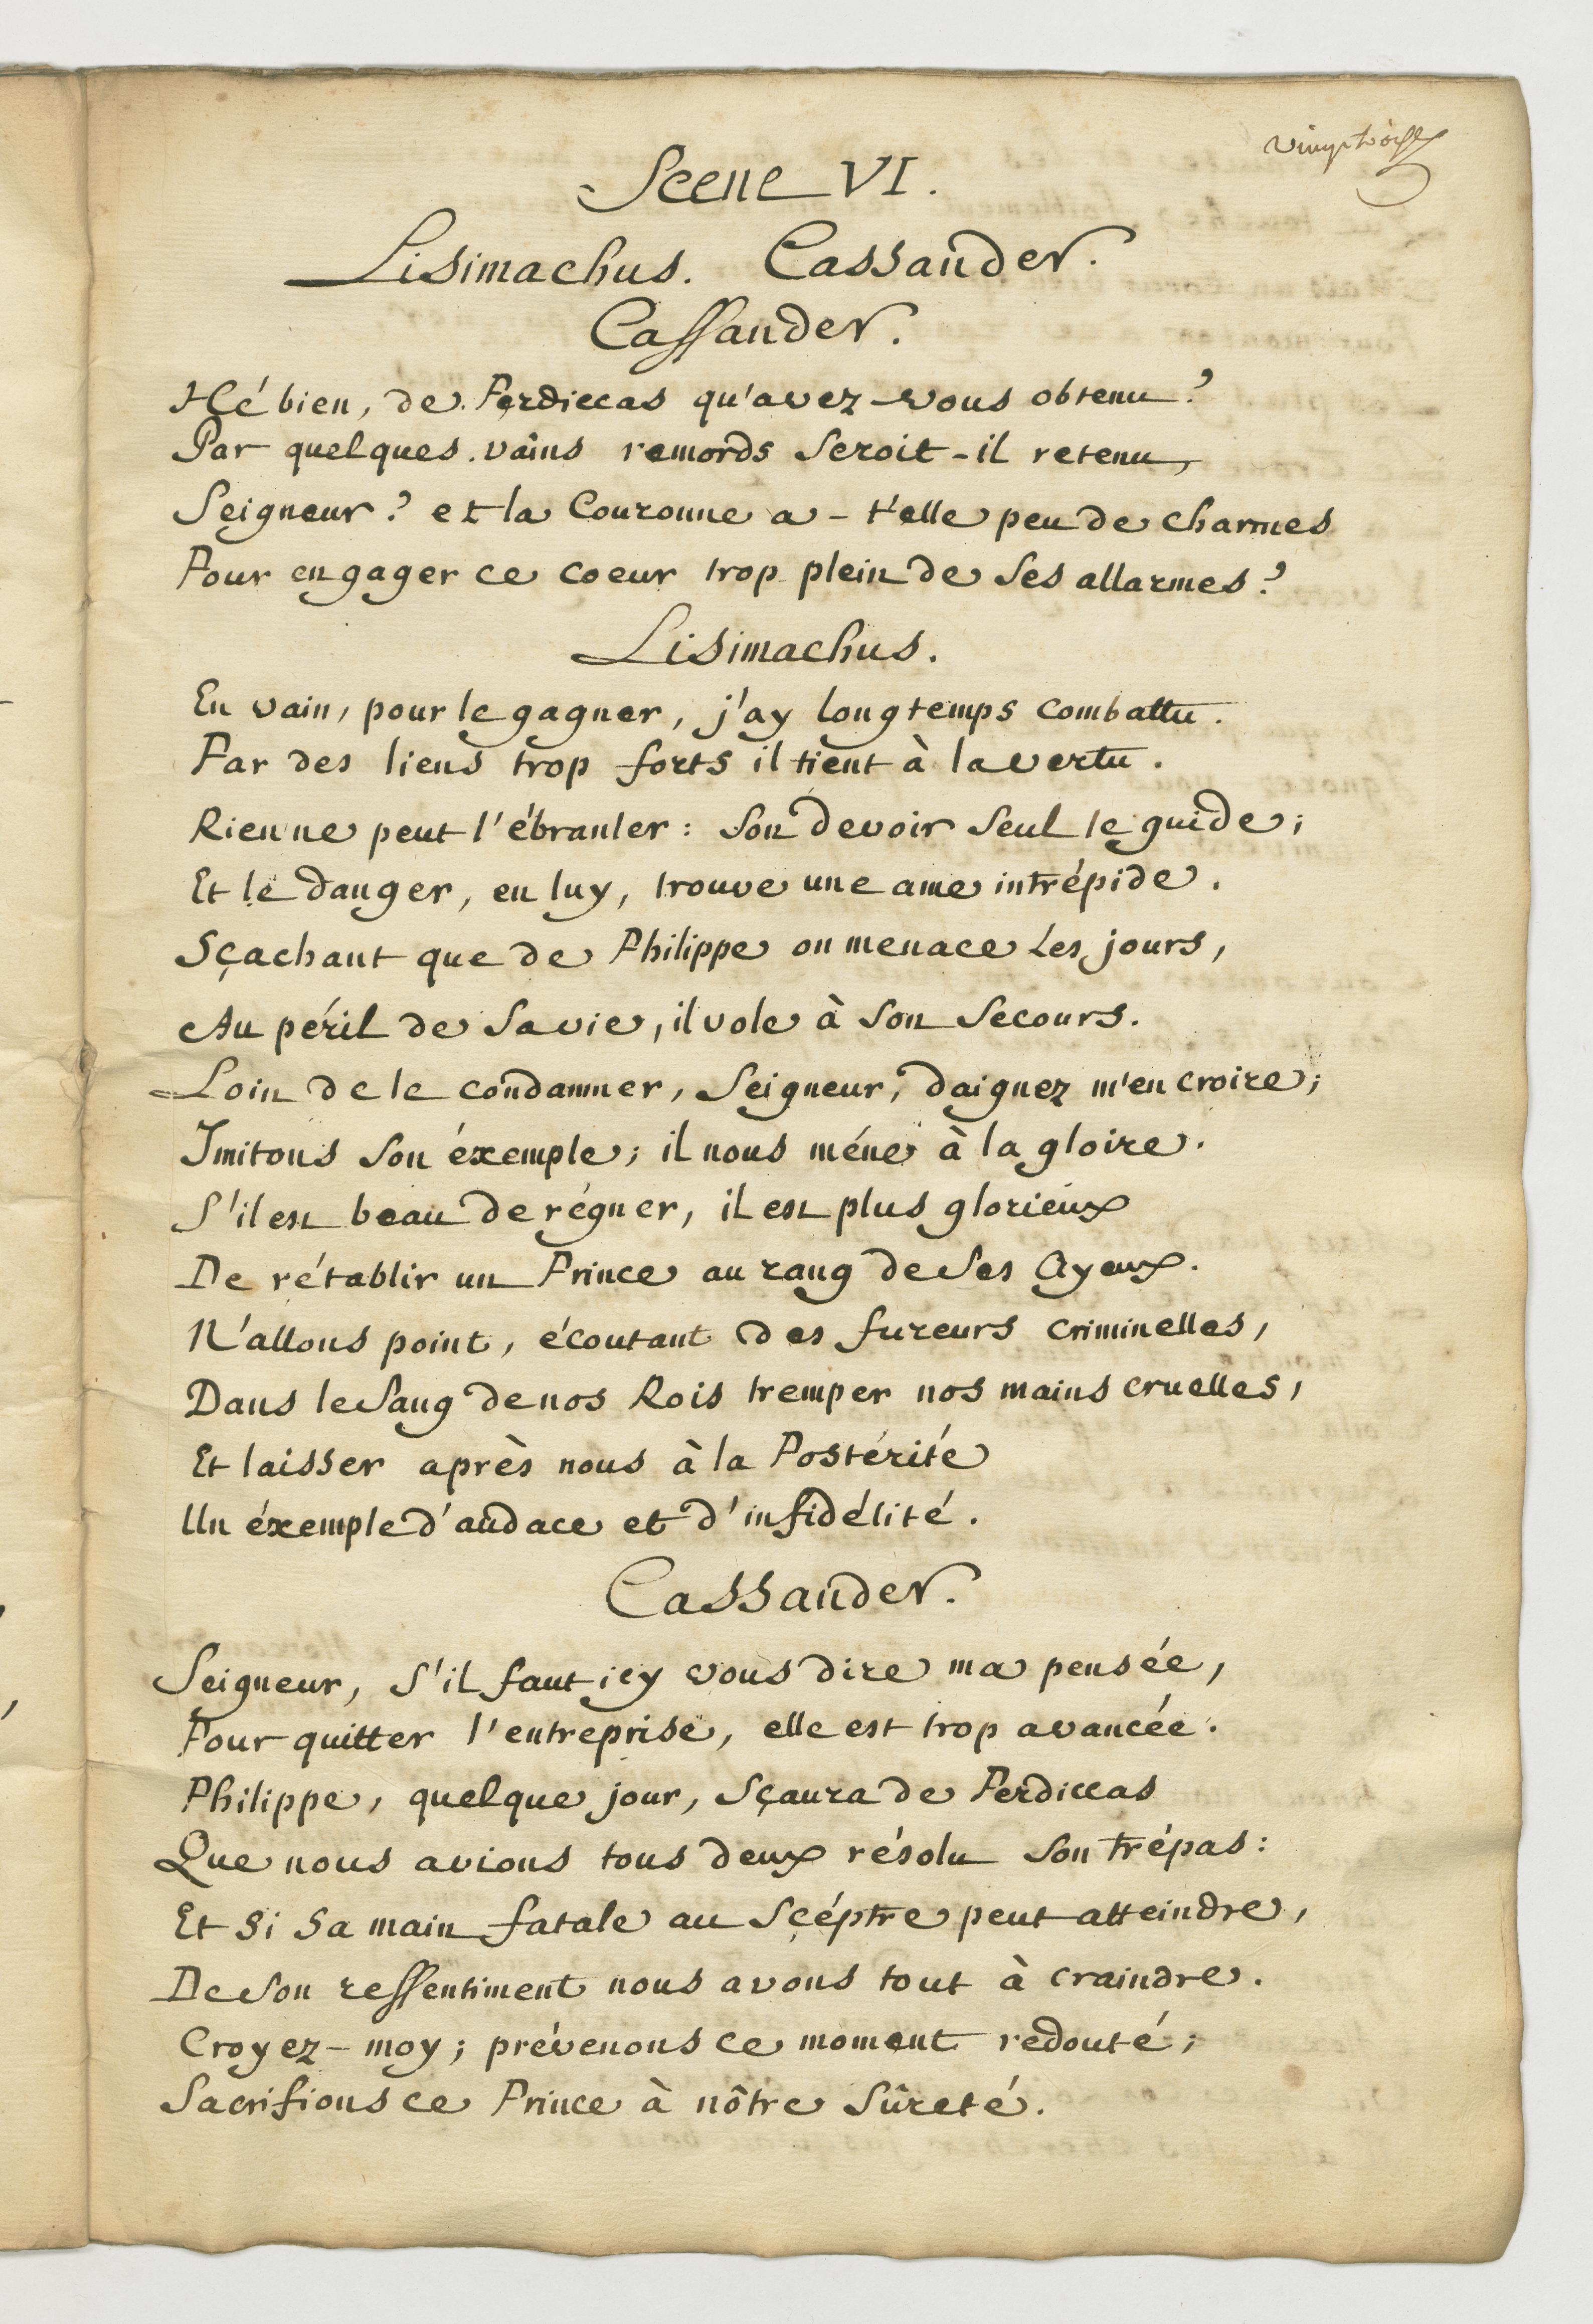 Scene VI.
Lisimachus. Cassander.
Cassander.
Hé bien, de Perdiccas qu'avez-vous obtenu?
Par quelques vains remords seroit-il retenu,
Seigneur? et la Couronne a-t'elle peu de charmes
Pour engager ce coeur trop plein de ses allarmes?
Lisimachus.
En vain, pour le gagner, j'ay longtemps combattu.
Par des liens trop forts il tient à la vertu.
Rien ne peut l'ébranler: son devoir seul le guide;
Et le danger, en luy, trouve une ame intrépide.
Sçachant que de Philippe on menace les jours,
Au péril de sa vie, il vole à son secours.
Loin de le condamner, Seigneur, daignez m'en croire;
Imitons son éxemple; il nous méne à la gloire.
S'il est beau de régner, il est plus glorieux
De rétablir un Prince au rang de ses Ayeux.
N'allons point, écoutant des fureurs criminelles,
Dans le sang de nos Rois tremper nos mains cruelles,
Et laisser après nous à la Postérité
Un éxemple d'audace et d'infidélité.
Cassander.
Seigneur, s'il faut icy vous dire ma pensée,
Pour quitter l'entreprise, elle est trop avancée.
Philippe, quelque jour, sçaura de Perdiccas
Que nous avions tous deux résolu son trépas:
Et si sa main fatale au Scéptre peut atteindre,
De son ressentiment nous avons tout à craindre.
Croyez-moy; prévenons ce moment redouté;
Sacrifions ce Prince à nôtre sûreté.